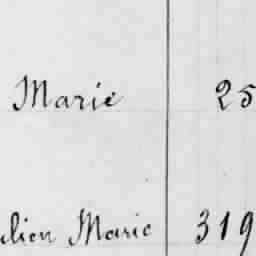 Marie 25
lien Marie 319